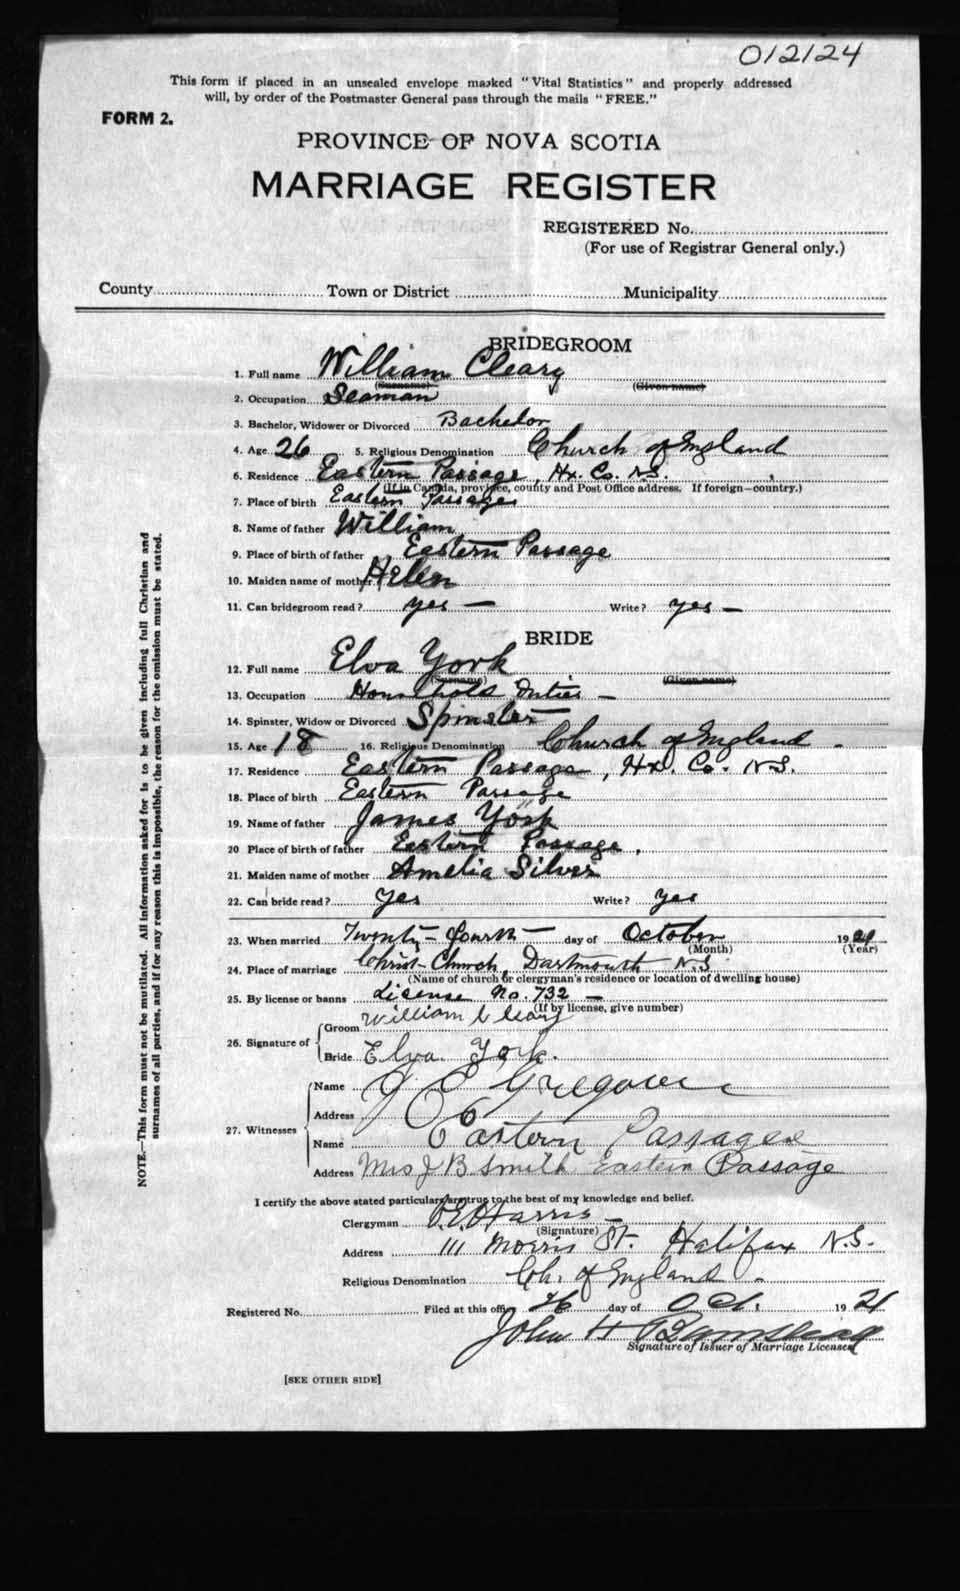 012124
This form if placed in an unsealed envelope marked "Vital Statistics" and properly addressed
will, by order of the Postmaster General pass through the mails "FREE."
FORM 2.
PROVINCE OF NOVA SCOTIA
MARRIAGE REGISTER
REGISTERED No.
(For use of Registrar General only.)
County Town or District Municipality
BRIDEGROOM
1. Full name William Cleary
(Surname) (Given name)
2. Occupation Seaman
3. Bachelor, Widower or Divorced Bachelor
4. Age 26 5. Religious Denomination Church of England
6. Residence Eastern Passage, Hx. Co. N.S.
(If in Canada, province, county and Post Office address. If foreign—country.)
7. Place of birth Eastern Passage
8. Name of father William
9. Place of birth of father Eastern Passage
10. Maiden name of mother Helen
11. Can bridegroom read? yes — Write? yes —
BRIDE
12. Full name Elva York
(Surname) (Given name)
13. Occupation Households Duties —
14. Spinster, Widow or Divorced Spinster
15. Age 18 16. Religious Denomination Church of England -
17. Residence Eastern Passage, Hx. Co. N.S.
18. Place of birth Eastern Passage
19. Name of father James York
20 Place of birth of father Eastern Passage.
21. Maiden name of mother Amelia Silver
22. Can bride read? yes Write? yes
23. When married Twenty-fourth — day of October 1921
(Month) (Year)
24. Place of marriage Christ Church, Dartmouth N.S
(Name of church or clergyman's residence or location of dwelling house)
25. By license or banns License No. 732 —
(If by license, give number)
26. Signature of
Groom William Cleary
Bride Elva York.
27. Witnesses
Name
Address
Name Eastern Passage
Address Mrs J B Smith Eastern Passage
I certify the above stated particulars are true to the best of my knowledge and belief.
Clergyman Harris —
(Signature)
Address 111 Morris St. Halifax N.S.
Religious Denomination Ch. of England -
Registered No. Filed at this office 26 day of Oct. 1921
John H
Signature of Issuer of Marriage Licenses
[SEE OTHER SIDE]
NOTE.—This form must not be mutilated. All information asked for is to be given including full Christian and
surnames of all parties, and if for any reason this is impossible, the reason for the omission must be stated.